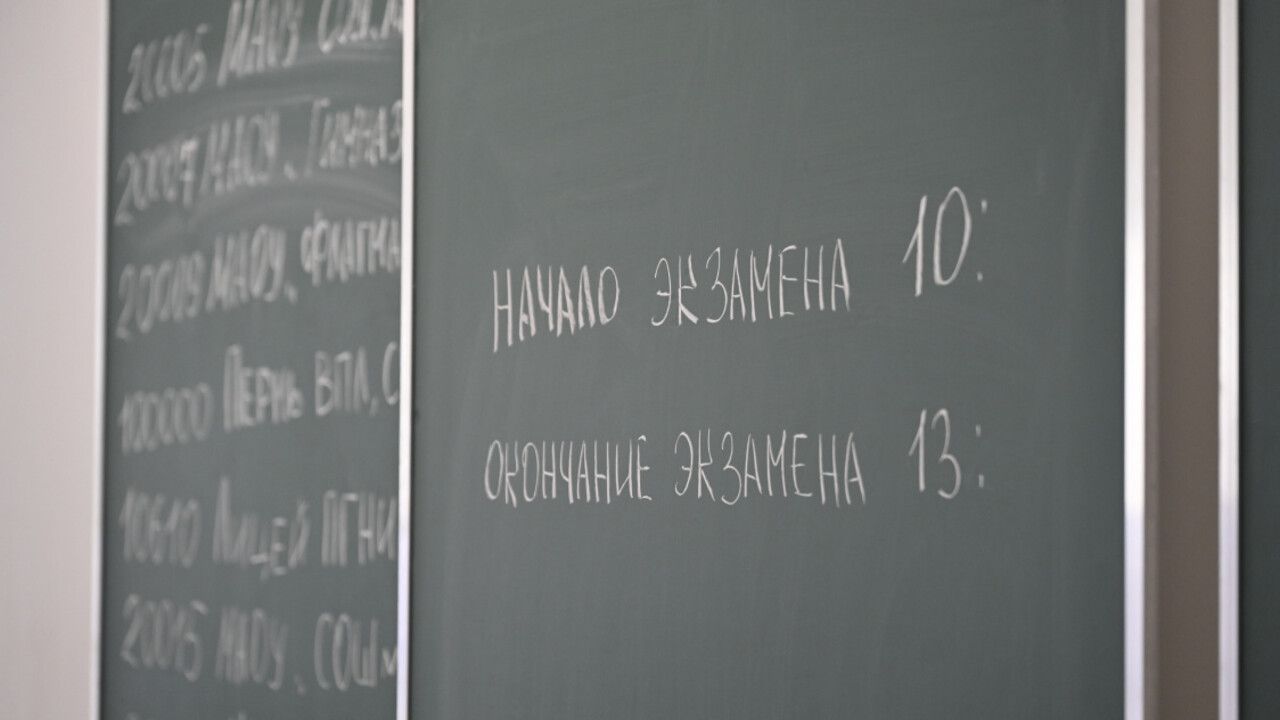 20005 МАОУ СОШ
20007 МАОУ, Гимназ
20009 МАОУ, Флагма
100000 Пермь ВПЛ, С
10610 Лицей ПГНИ
20015 МАОУ, СОШ
НАЧАЛО ЭКЗАМЕНА 10:
ОКОНЧАНИЕ ЭКЗАМЕНА 13: